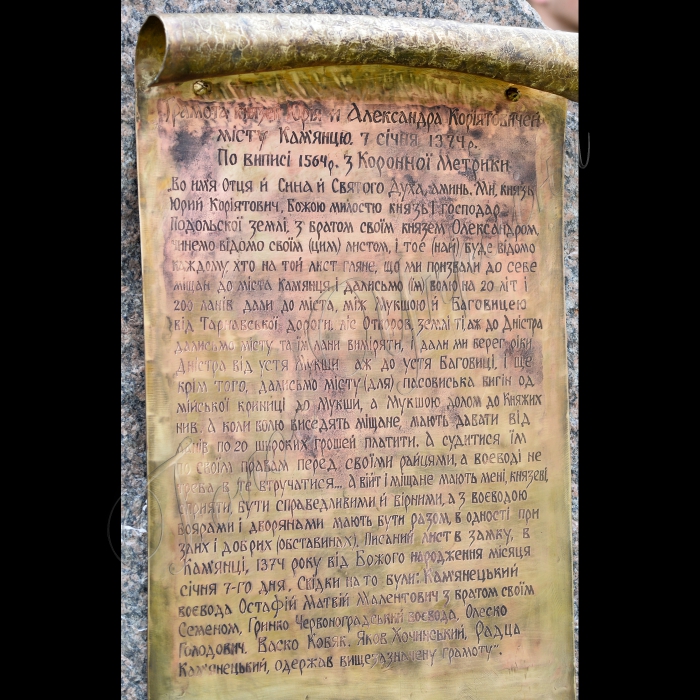 Грамота князів Юрія й Александра Коріятовичей
місту Кам'янцю, 7 січня 1374р.
По виписі 1564р. з Коронної Метрики.
„Во им'я Отця й Сина й Святого Духа, аминь. Ми, князь
Юрий Коріятович, Божою милостю князь і господар
Подольскої землі, з братом своїм князем Олександром,
чинемо відомо своїм (цим) листом, і тоє (най) буде відомо
каждому, хто на той лист гляне, що ми призвали до себе
міщан до міста Кам'янця і далисьмо (їм) волю на 20 літ і
200 ланів дали до міста, між Мукшою й Баговицею
від Тарнавської дороги, ліс Отворов, землі ті аж до Дністра
далисьмо місту та їм лани виміряти, і дали ми верег ріки
Дністра від устя Мукши аж до устя Баговиці, і ще
крім того, далисьмо місту (для) пасовиська вигін од
мійської криниці до Мукши, а Мукшою долом до Княжих
нив. А коли волю виседять міщане, мають давати від
ланів по 20 широких грошей платити. А судитися їм
по своїм правам перед своїми райцями, а воєводі не
треба в те втручатися... А війт і міщане мають мені, князеві,
сприяти, бути справедливими й вірними, а з воєводою
боярами і дворянами мають бути разом, в одності при
злих і добрих (обставинах). Писаний лист в замку, в
Кам'янці, 1374 року від Божого народження місяця
січня 7-го дня. Свідки на то були: Кам'янецький
воєвода Остафій Матвій Жалентович з братом своїм
Семеном, Гринко Червоноградський воєвода, Олеско
Голодович, Васко Кобяк, Яков Хочинський, Радца
Кам'янецький, одержав вищезазначену грамоту".